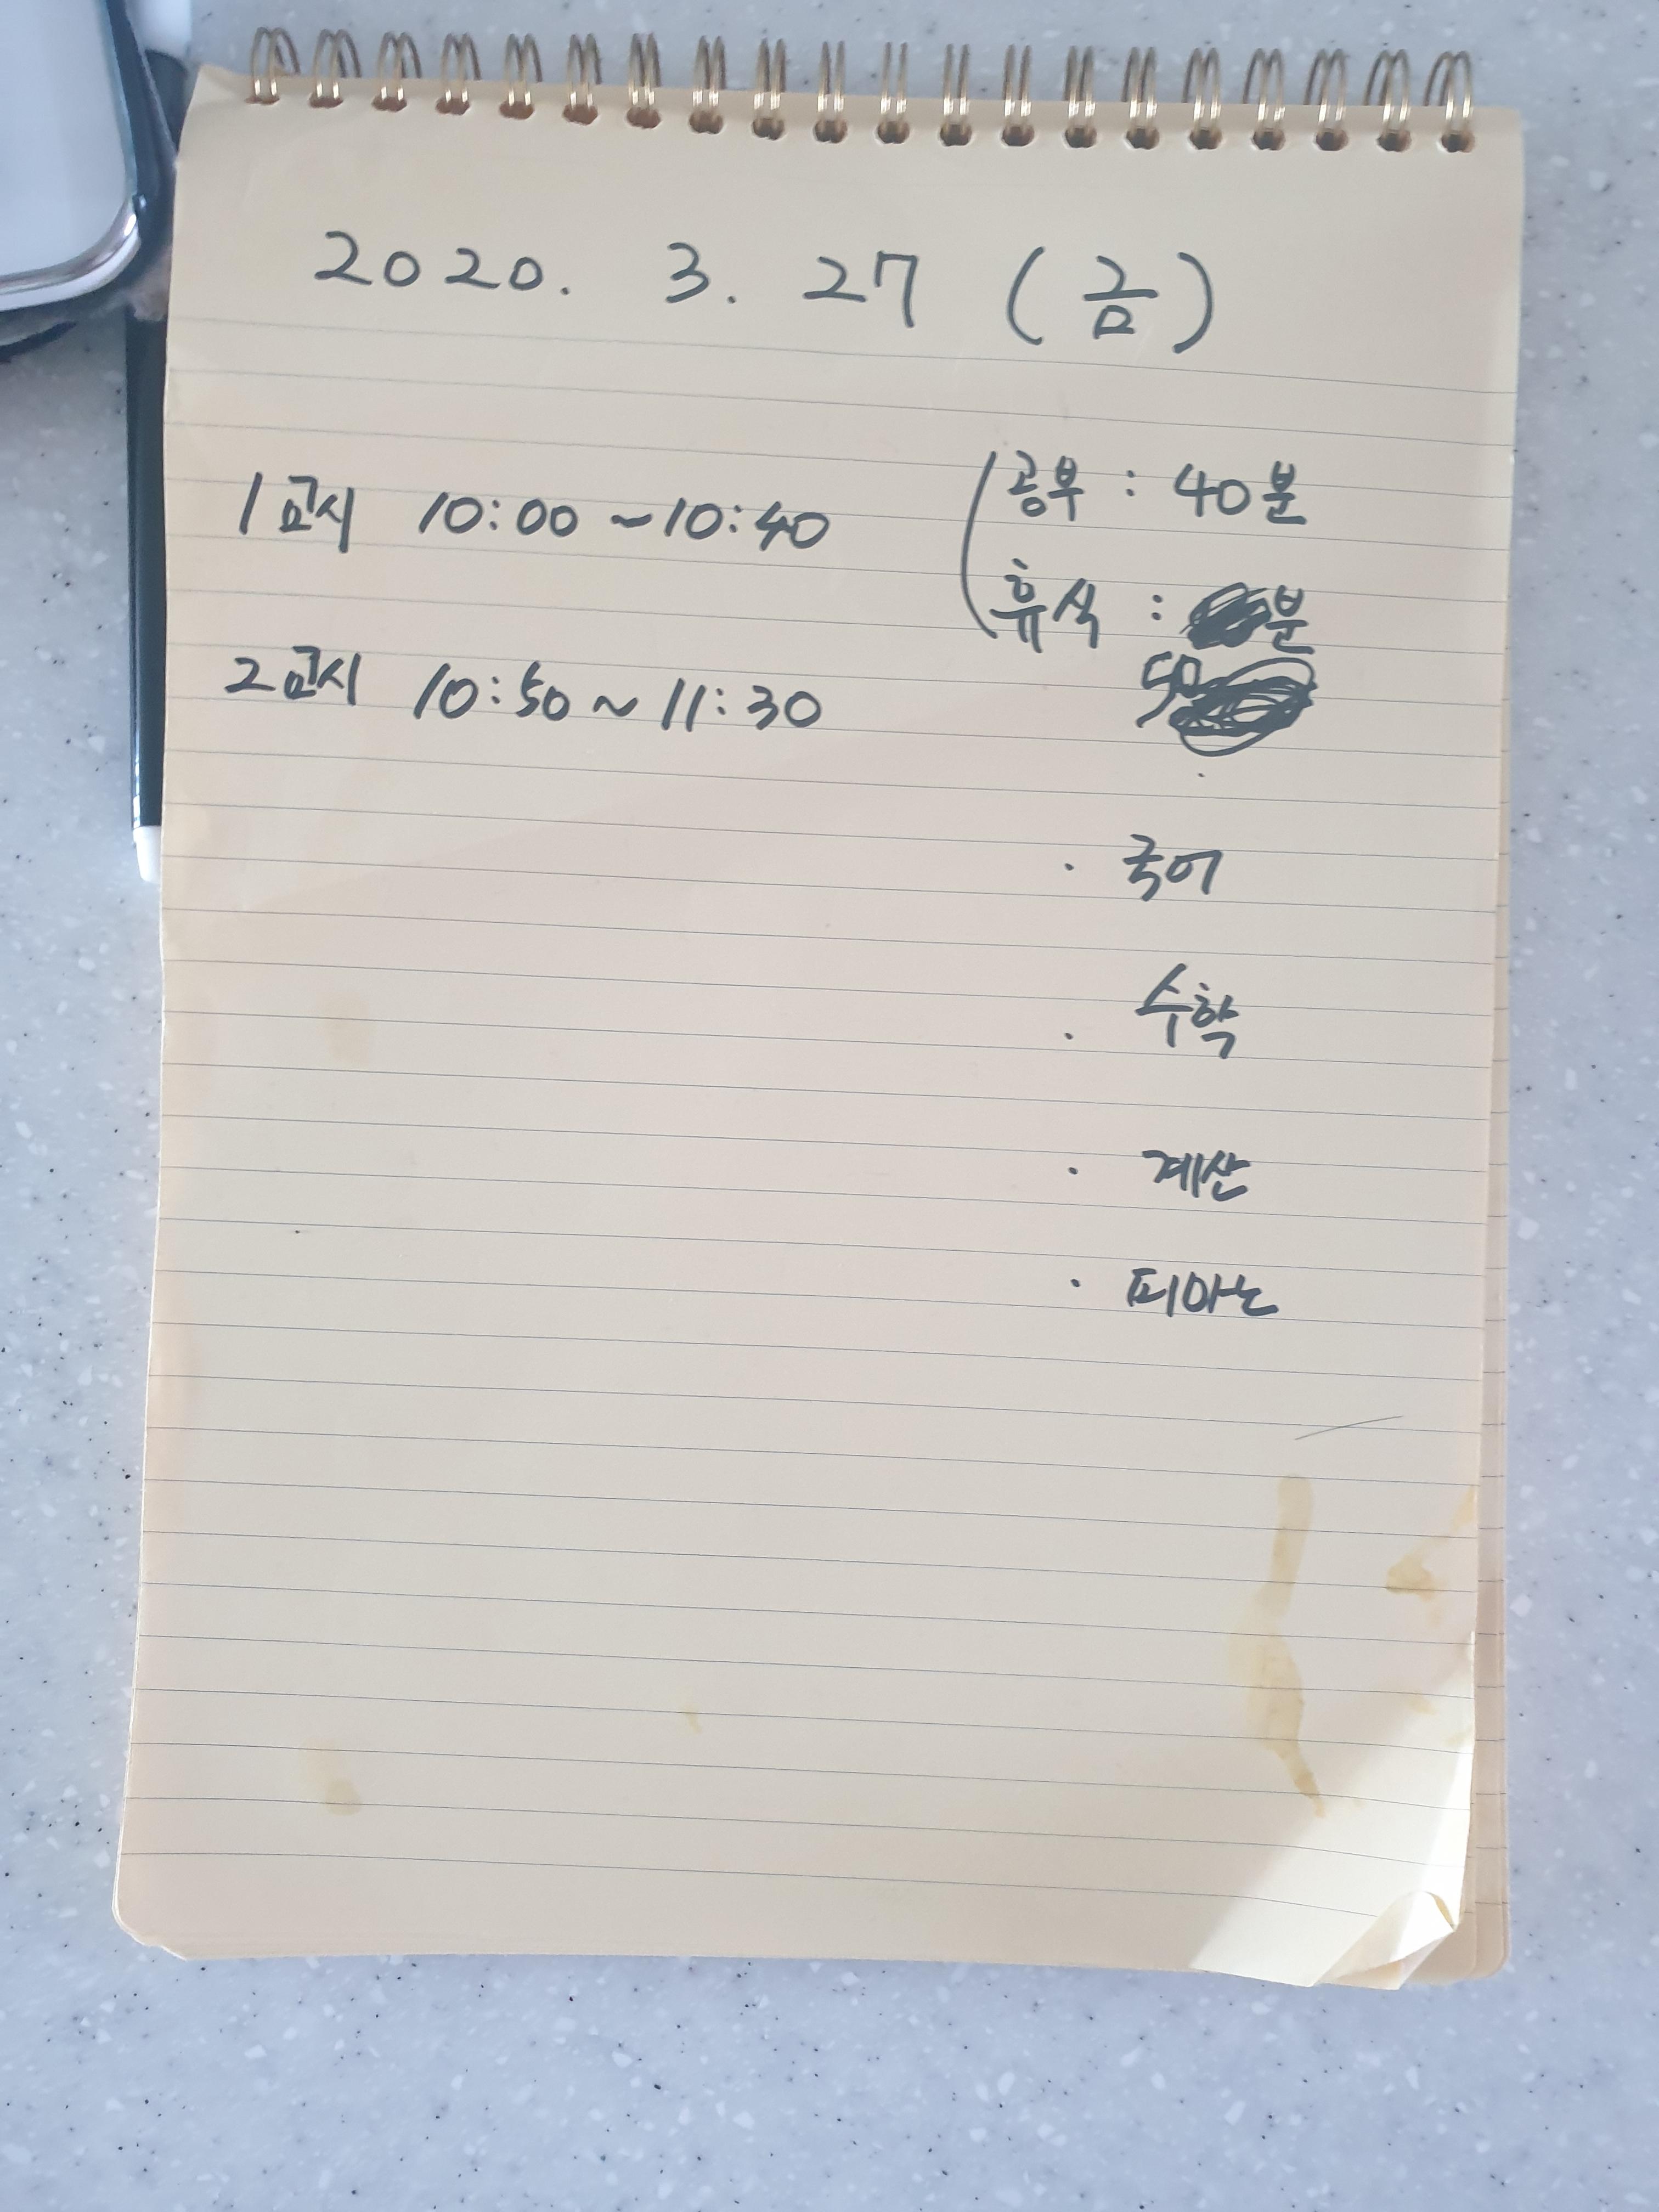 2020. 3. 27 (금)
1교시 10:00 ~ 10:40
2교시 10:50 ~ 11:30
공부 : 40분
휴식 : 분
50
· 국어
· 수학
· 계산
· 피아노